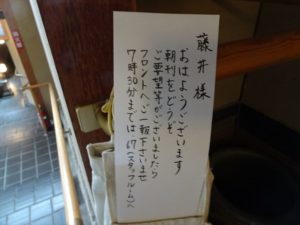 藤井様
おはようございます
朝刊をどうぞ
ご要望等がございましたら
フロントへご一報下さいませ
7時30分までは67(スタッフルーム)へ